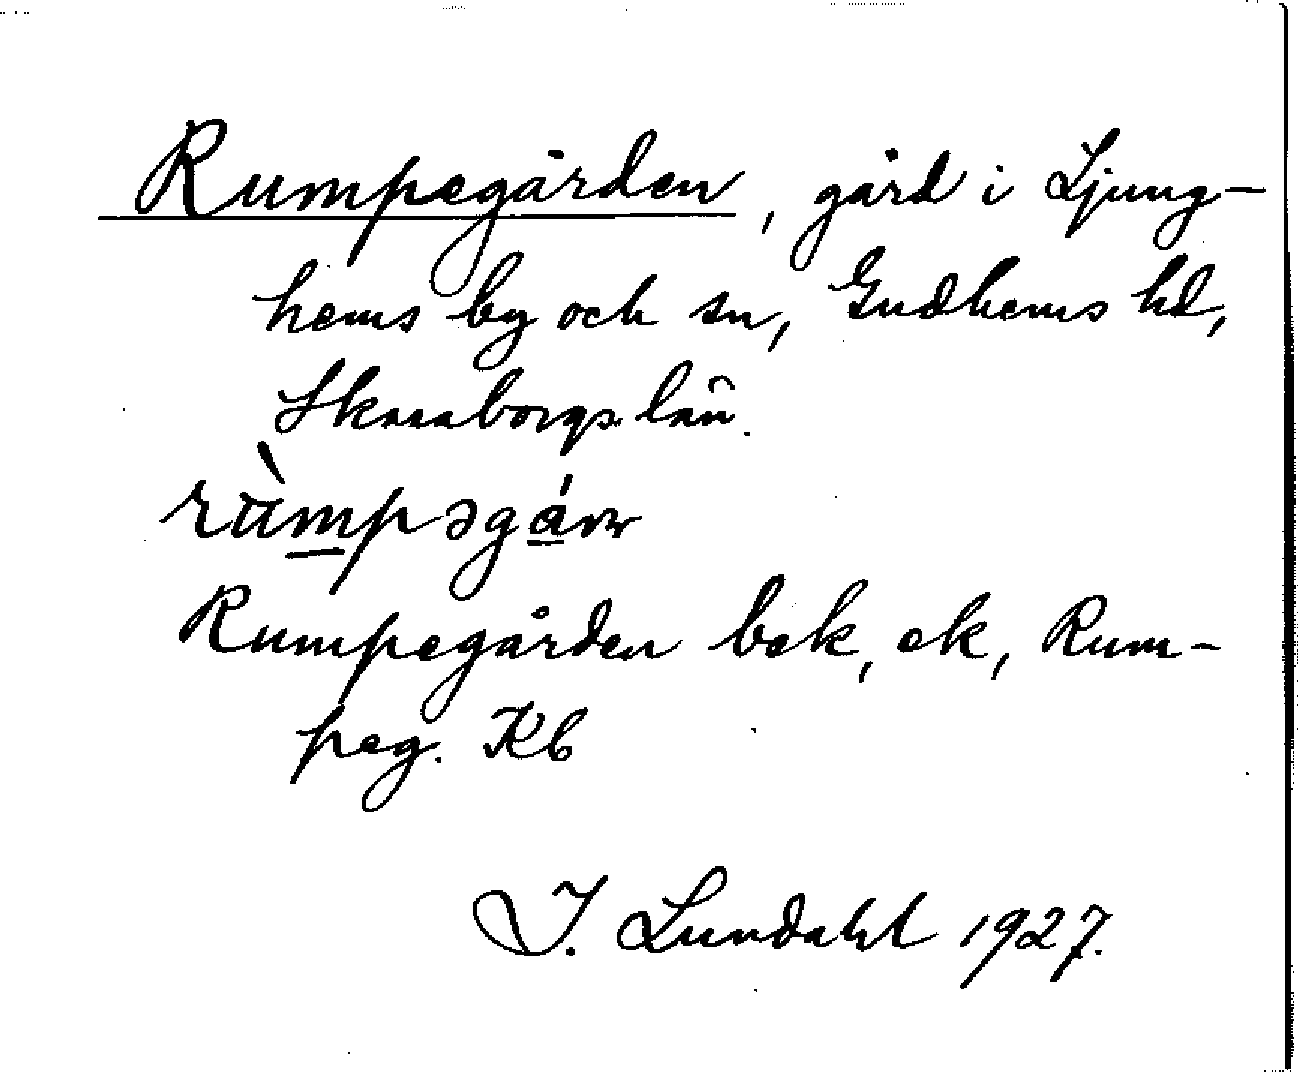 Rumpegården, gård i Ljung-
hems by och sn, Gudhems hd,
Skaraborgs län.
Rumpegården bek, ek, Rum-
peg. Kb
I. Lundahl 1927.